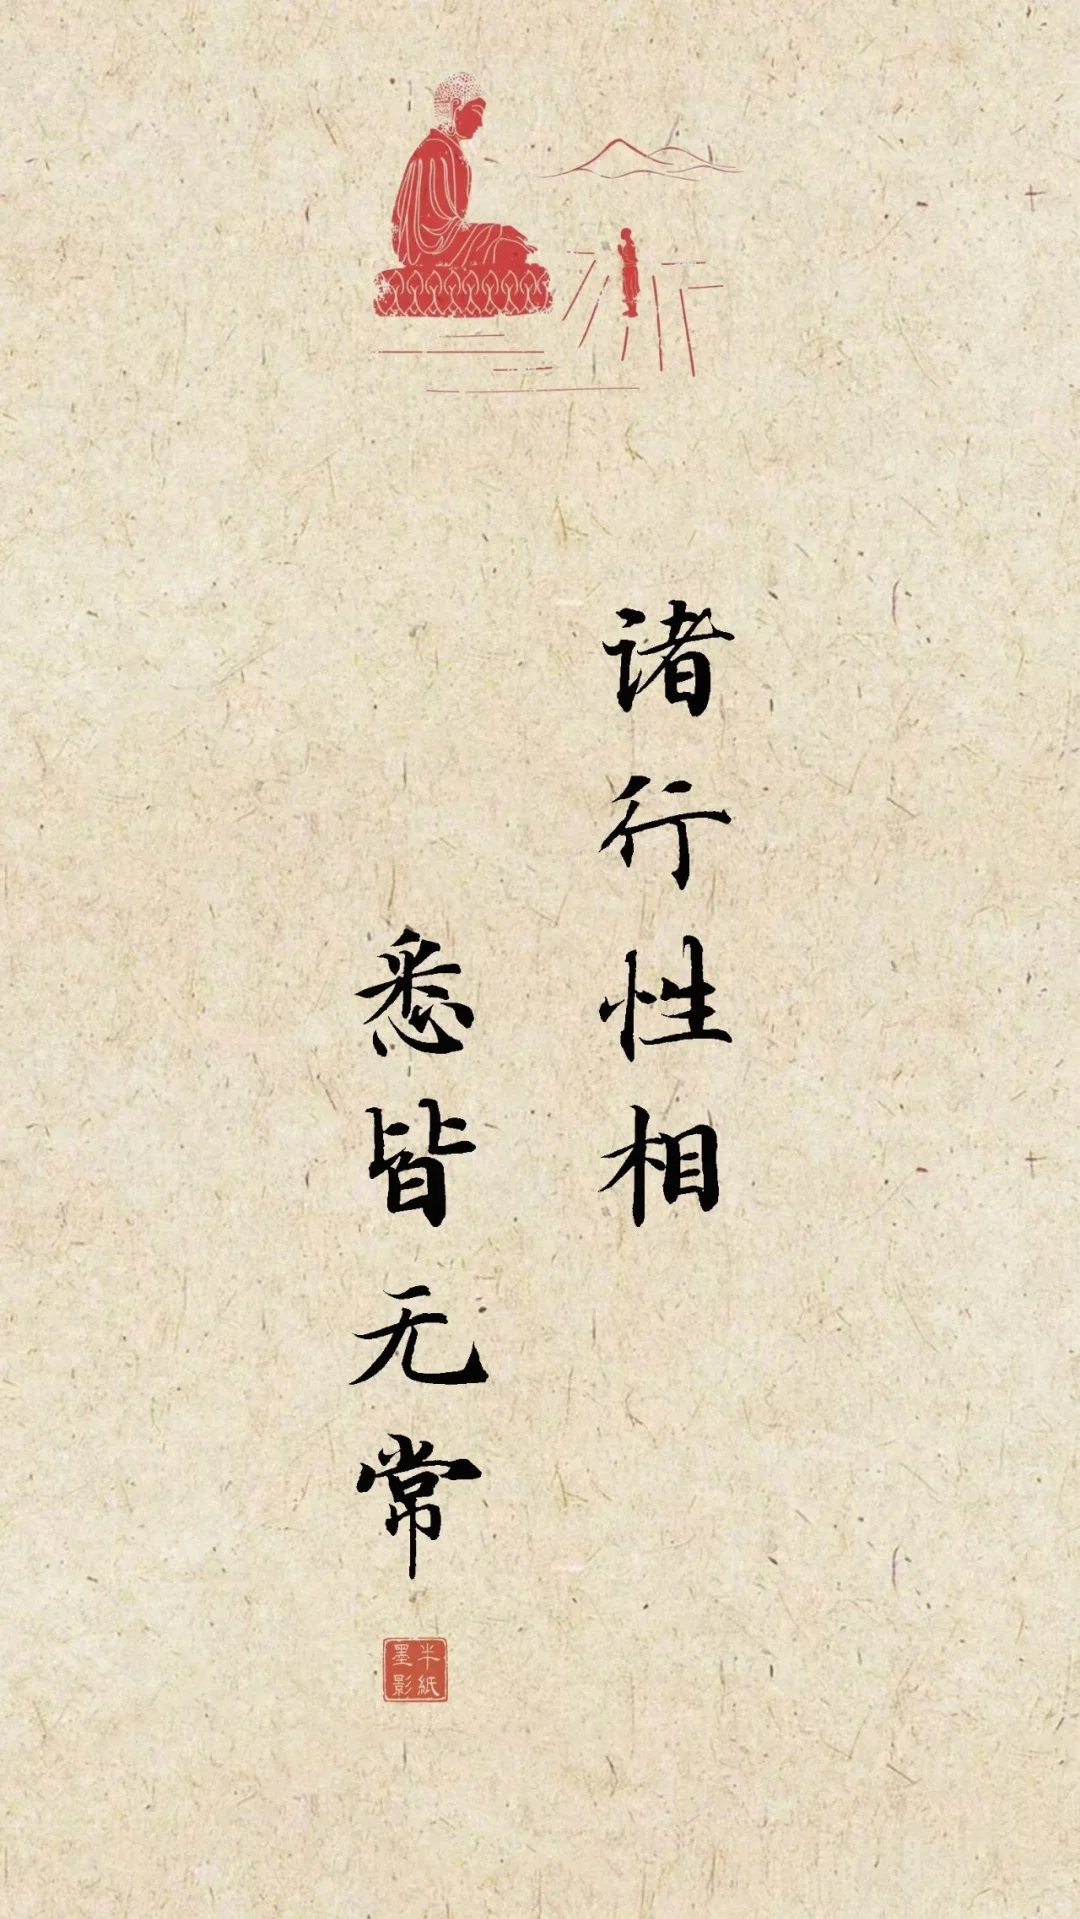 诸行性相
悉皆无常
半紙
墨影